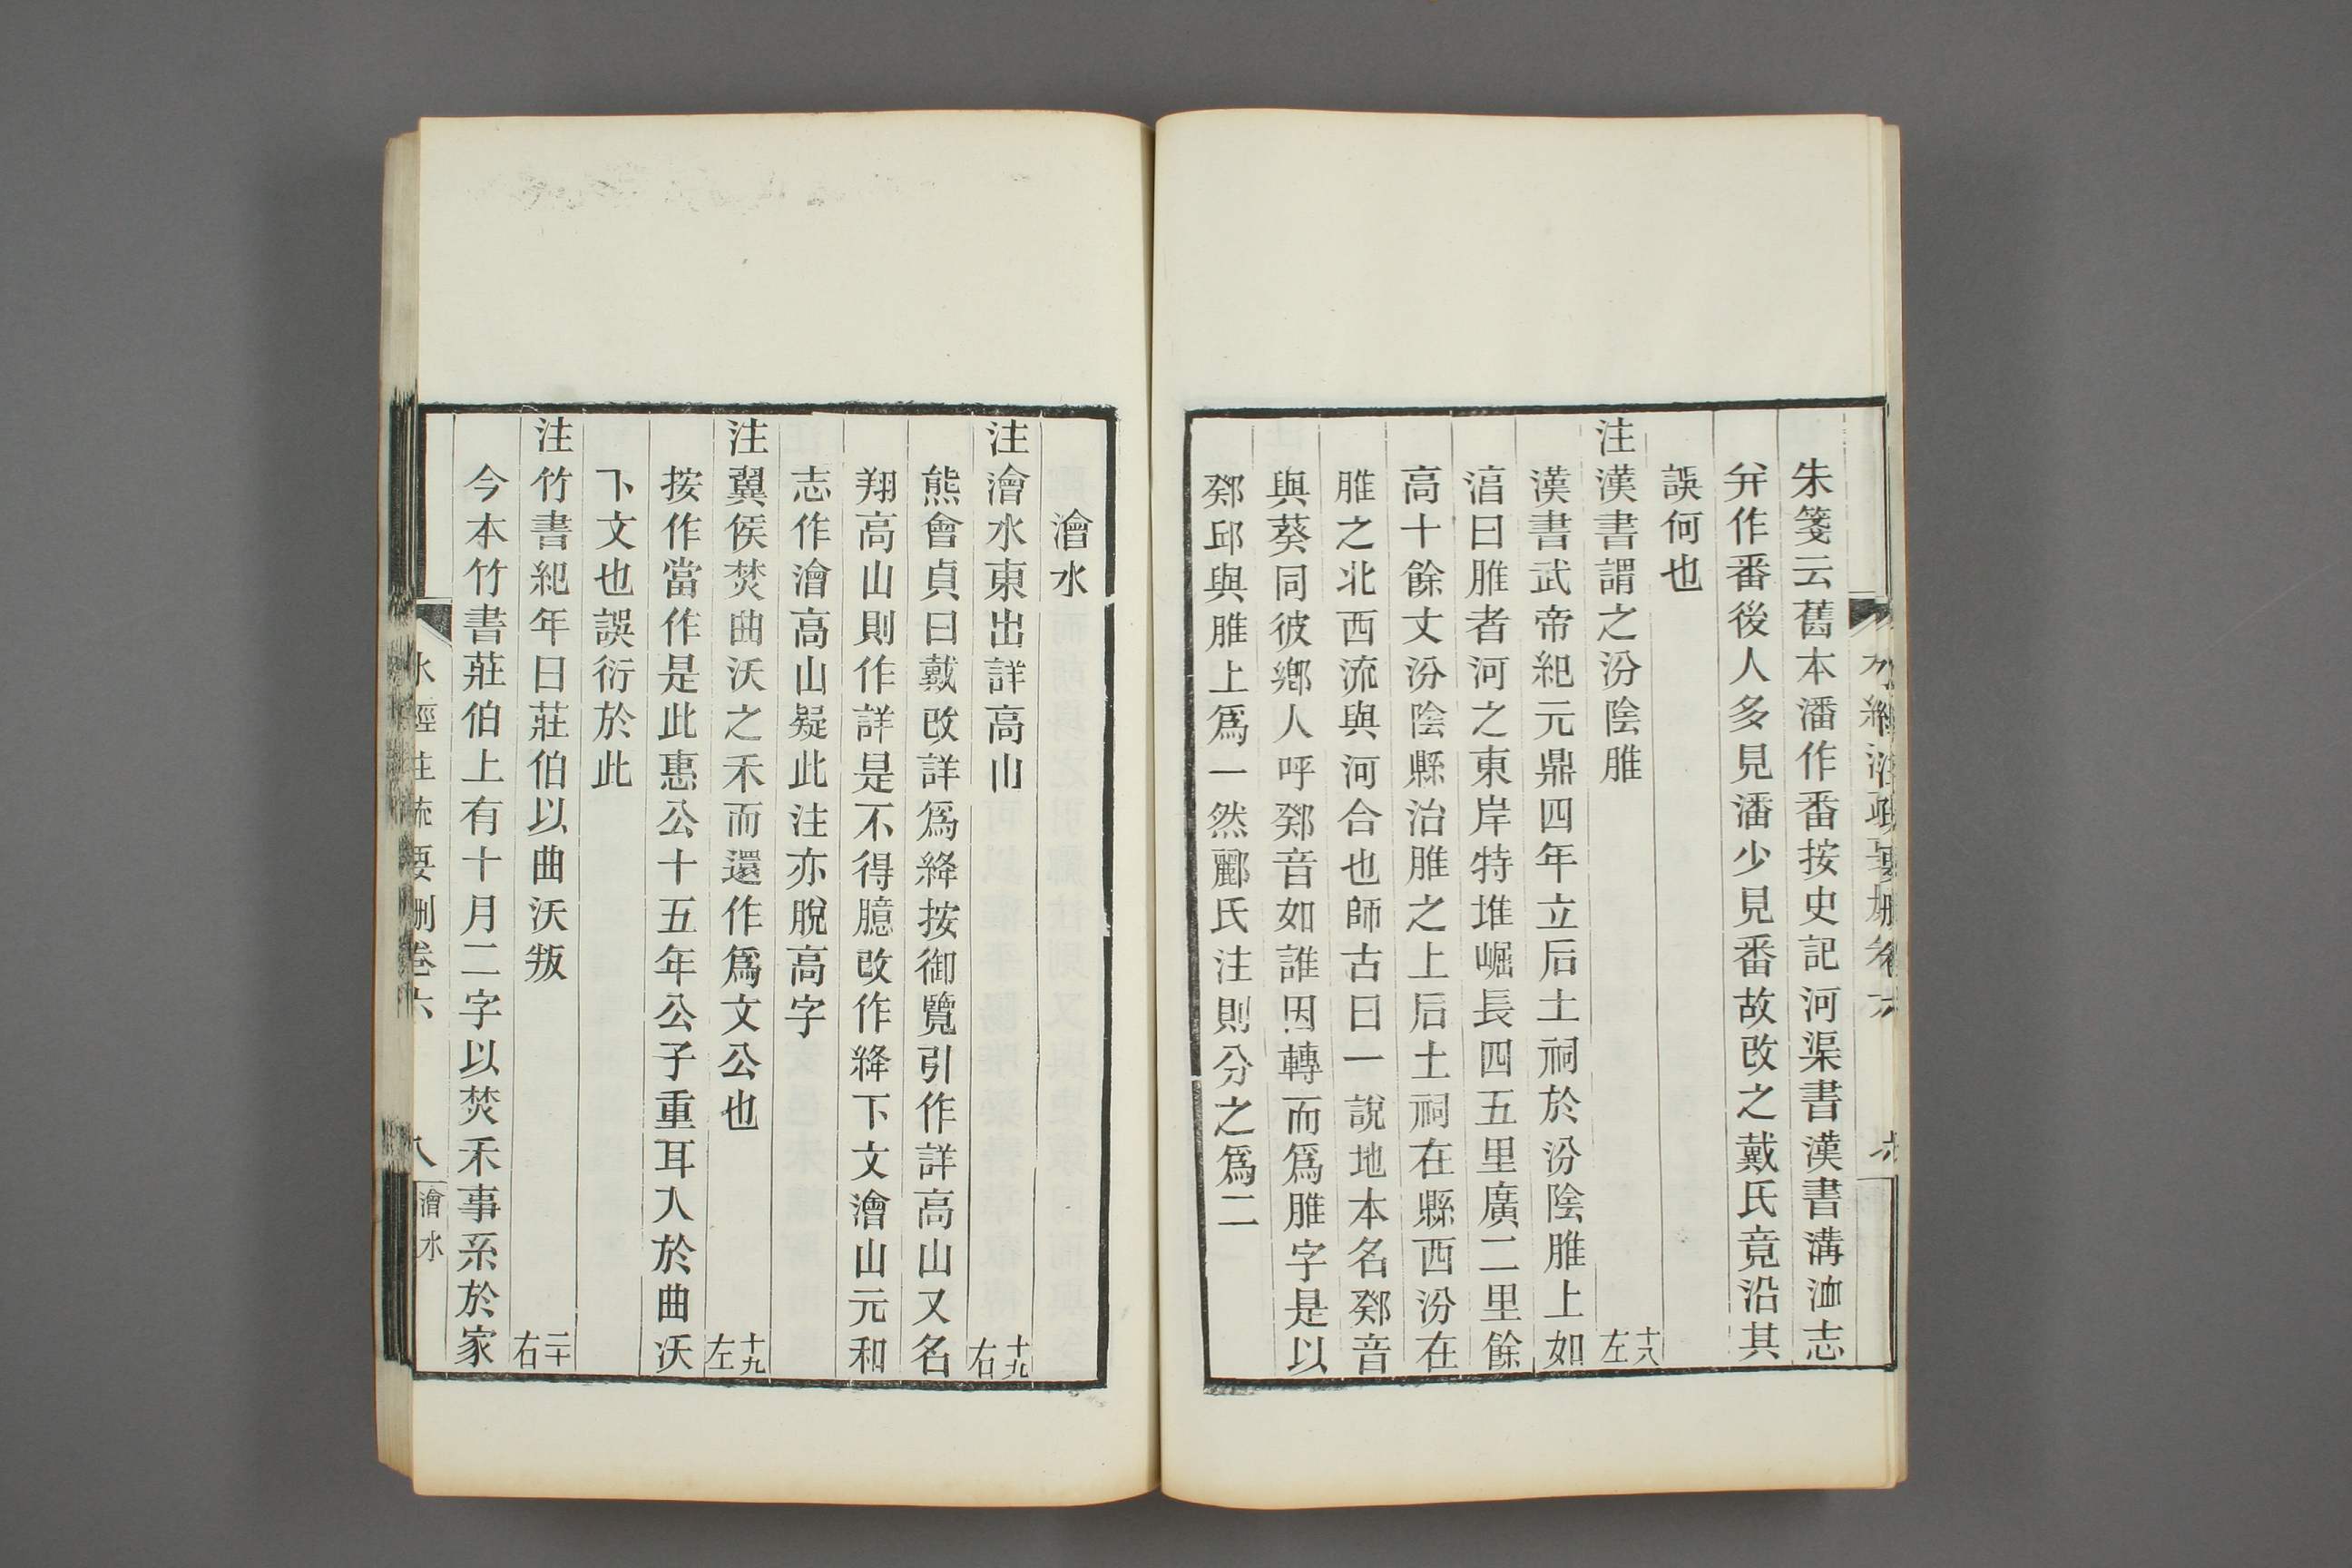 朱箋云舊本潘作番按史記河渠書漢書溝洫志
弁作番後人多見潘少見番故改之戴氏竟沿其
誤何也
注漢書謂之汾陰脽 十八左
漢書武帝紀元鼎四年立后土祠於汾陰脽上如
湻曰脽者河之東岸特堆崛長四五里廣二里餘
高十餘丈汾陰縣治脽之上后土祠在縣西汾在
脽之北西流與河合也師古曰一說地本名鄈音
與葵同彼鄉人呼鄈音如誰因轉而爲脽字是以
鄈邱與脽上爲一然酈氏注則分之爲二
澮水
注澮水東出詳高山 十九右
熊會貞曰戴改詳爲絳按御覽引作詳高山又名
翔高山則作詳是不得臆改作絳下文澮山元和
志作澮高山疑此注亦脫高字
注翼侯焚曲沃之禾而還作爲文公也 十九左
按作當作是此惠公十五年公子重耳入於曲沃
下文也誤衍於此
注竹書紀年曰莊伯以曲沃叛 二十右
今本竹書莊伯上有十月二字以焚禾事系於家
水經注疏要刪卷六 八 澮水